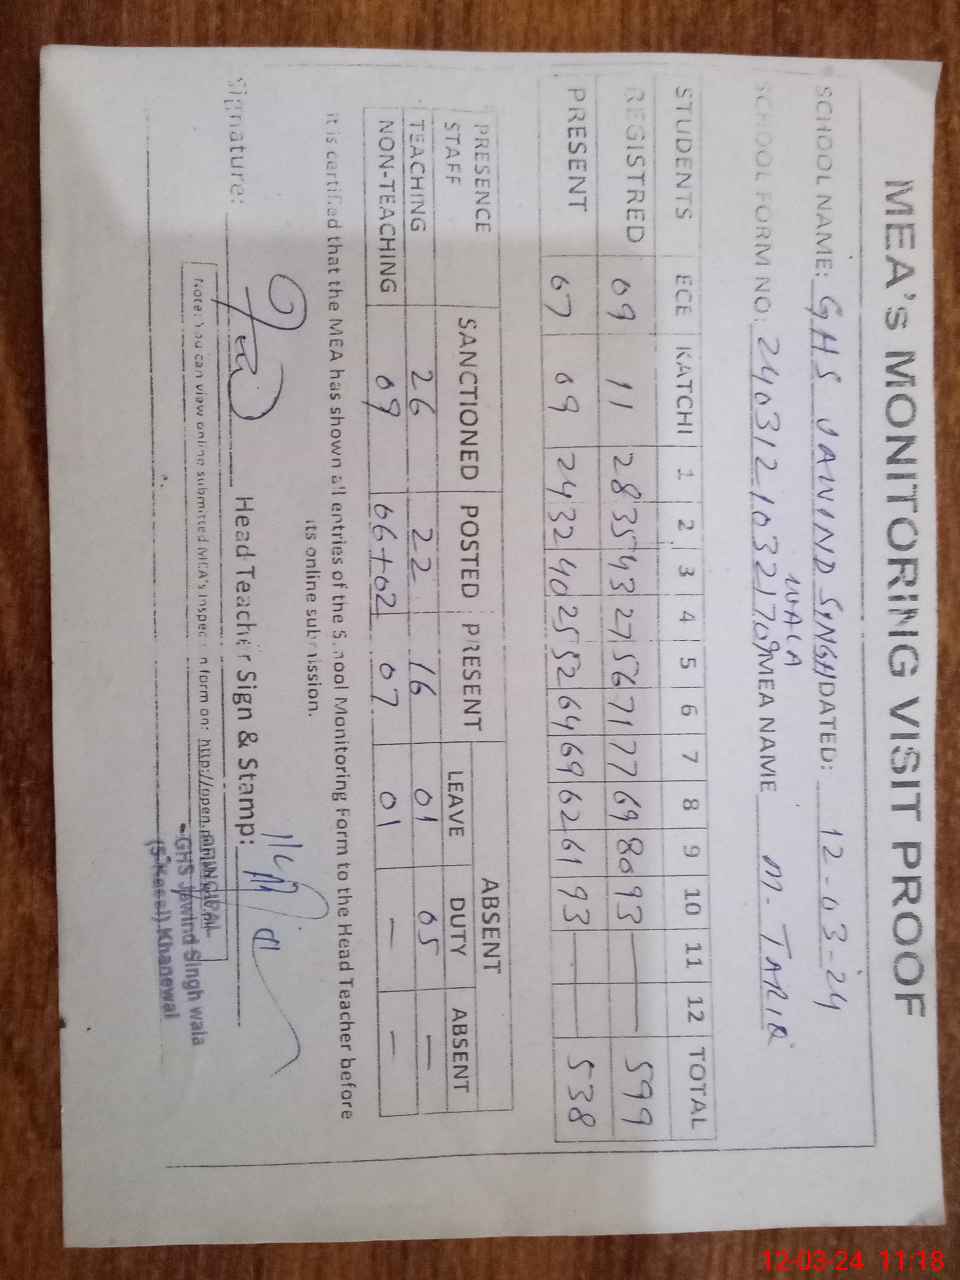 MEA's MONITORING VISIT PROOF
SCHOOL NAME: GHS JAWIND SINGH DATED: 12-03-24
WALA
SCHOOL FORM NO: MEA NAME M. TARIQ
STUDENTS ECE KATCHI 1 2 3 4 5 6 7 8 9 10 11 12 TOTAL
REGISTRED 09 11 28 35 43 27 56 71 77 69 80 93 — — 599
PRESENT 07 09 24 32 40 25 52 64 69 62 61 93 — — 538
PRESENCE STAFF SANCTIONED POSTED PRESENT ABSENT
LEAVE DUTY ABSENT
TEACHING 26 22 16 01 05 —
NON-TEACHING 09 06+02 07 01 — —
it is certified that the MEA has shown all entries of the School Monitoring Form to the Head Teacher before
its online submission.
Signature: Head Teacher Sign & Stamp:
Note: You can view online submitted MEA's inspection form on: http://open.
PRINCIPAL
GHS Jawind Singh wala
Khanewal
12-03-24 11:18